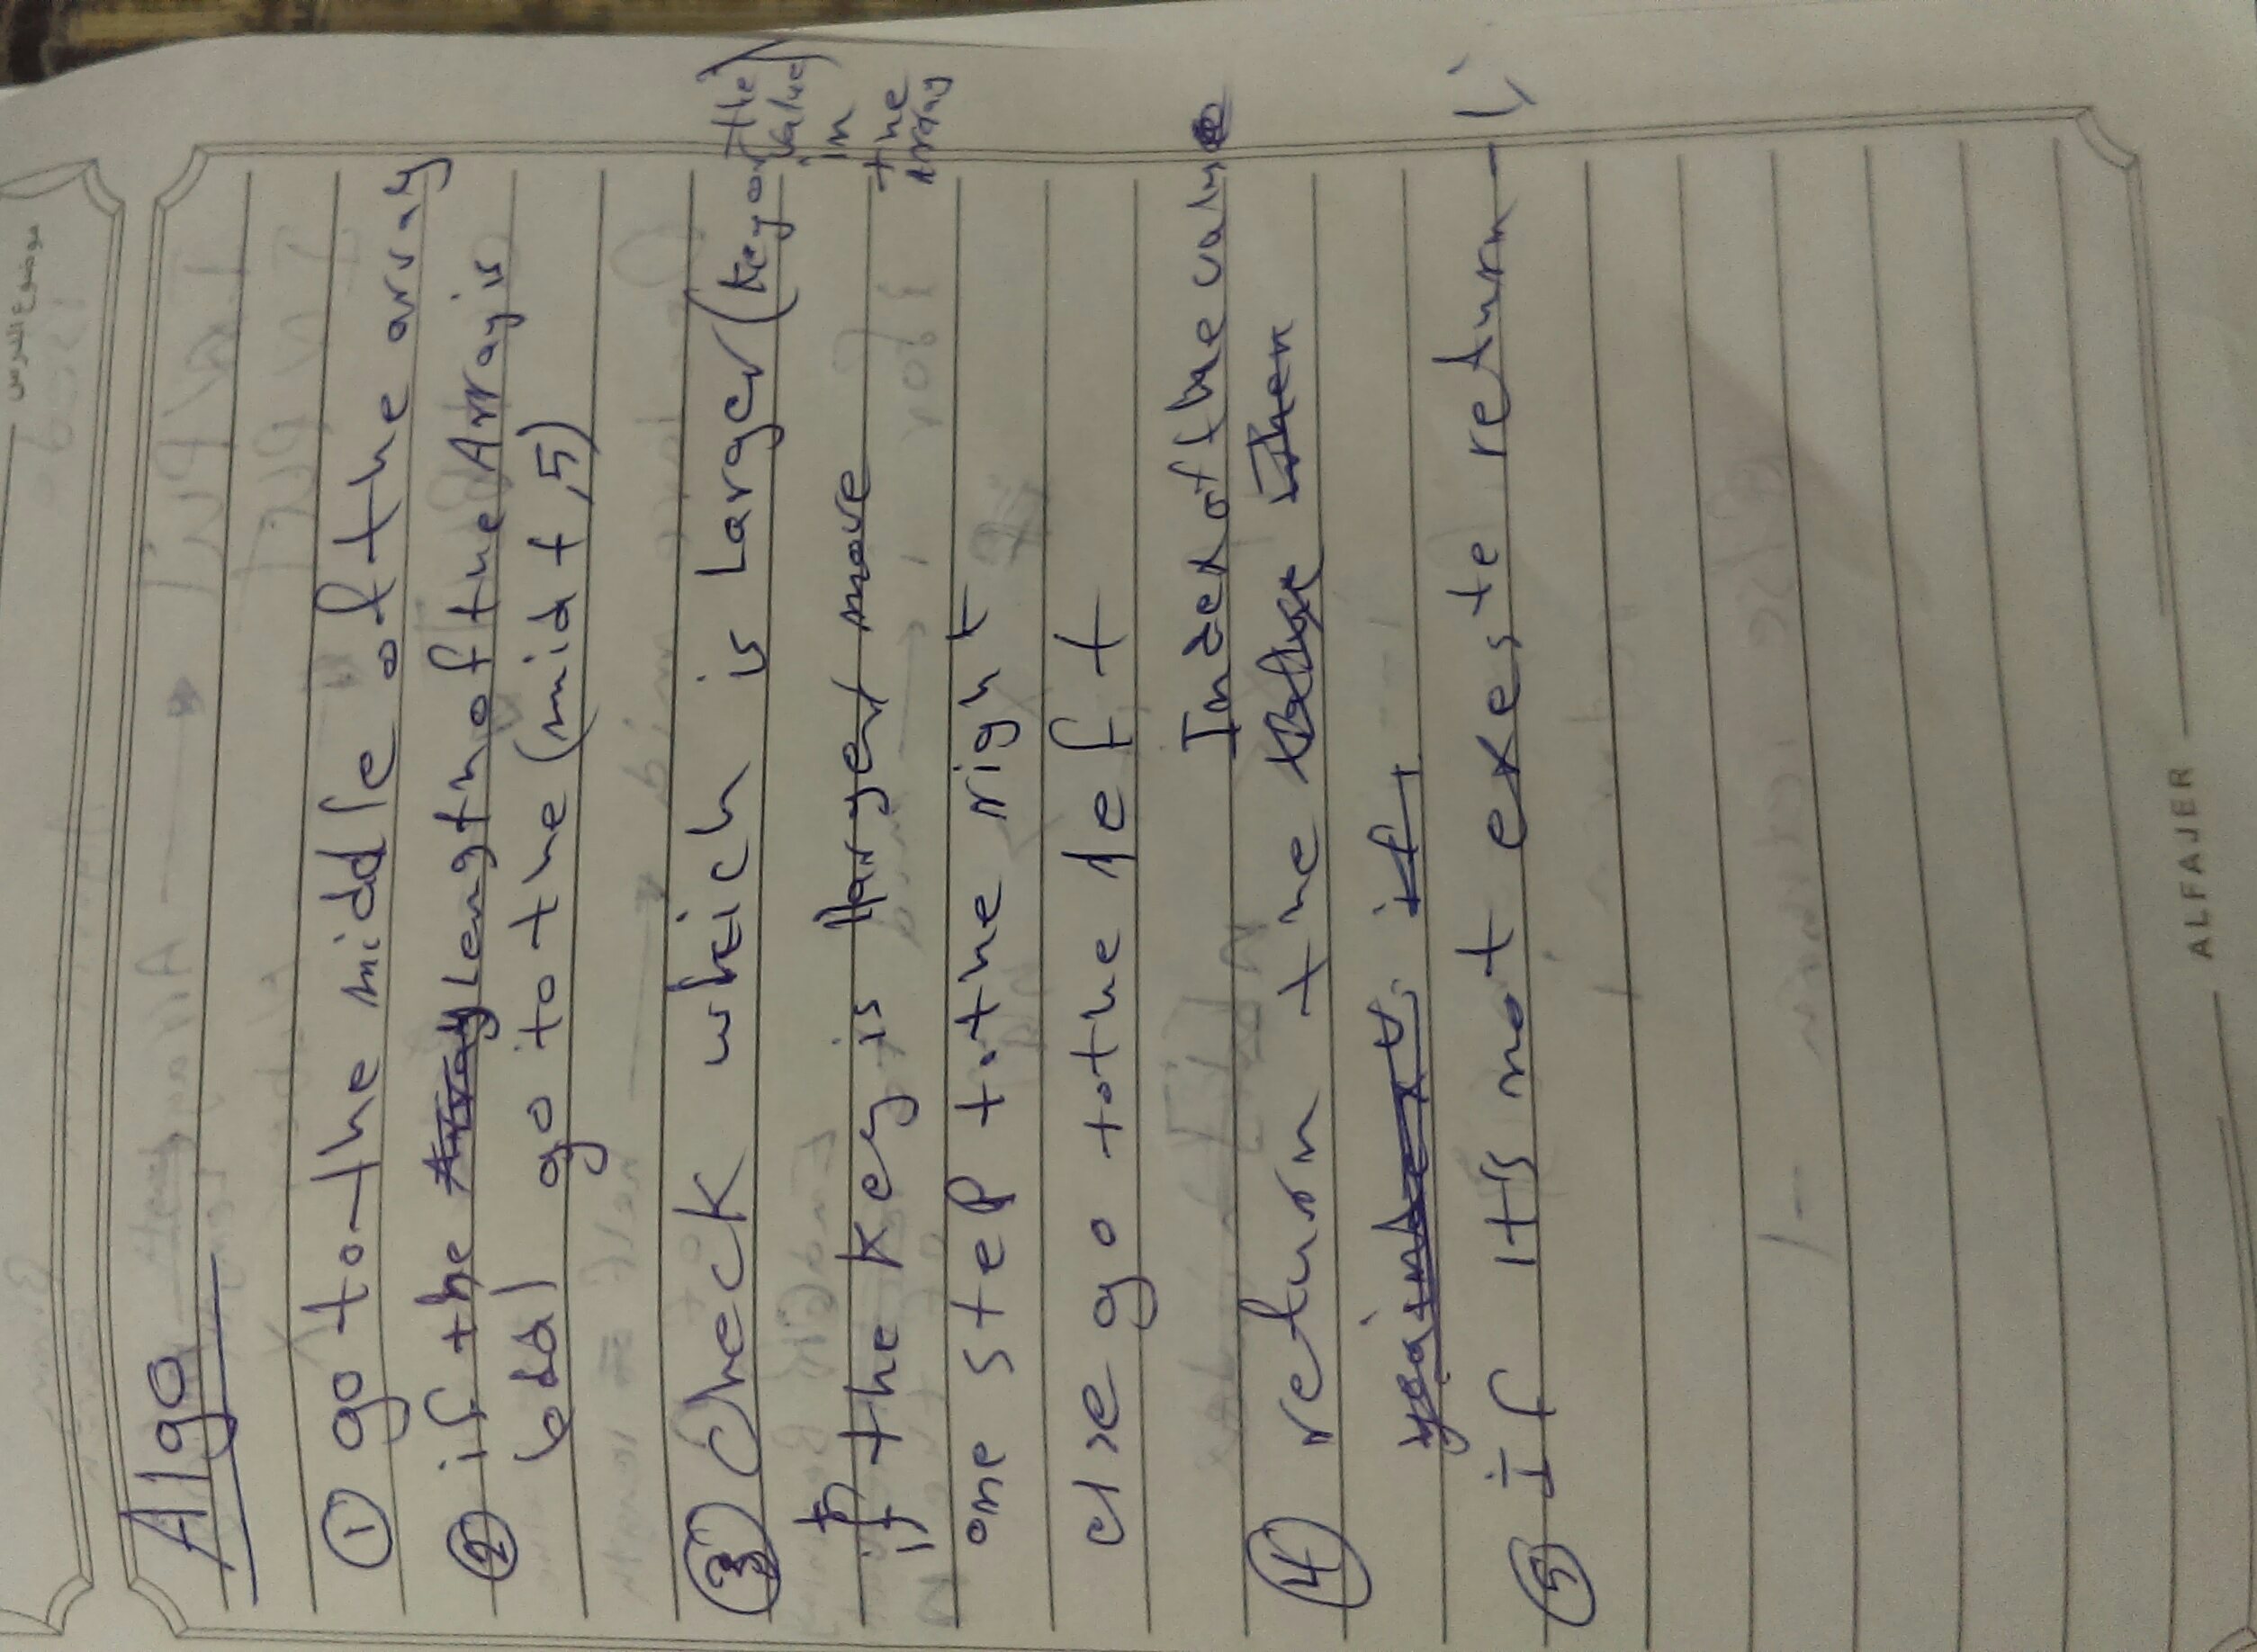 موضوع الدرس
Algo
① go to the middle of the array
② if the Array Length of the Array is
odd go to the (mid + ,5)
③ Check which is Larger (key or the value) in the Array
if the key is larger move
one step to the right
else go to the left
Index of the value
④ return the value then
if
⑤ if it's not existe return -1;
ALFAJER